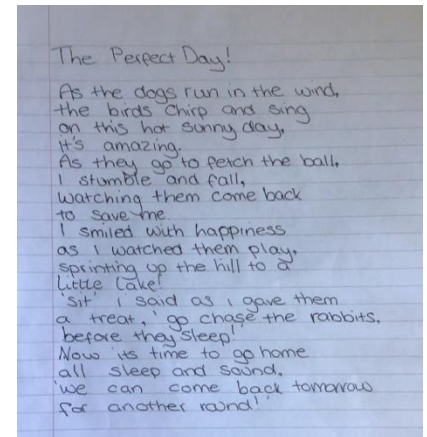 The Perfect Day!
As the dogs run in the wind,
the birds chirp and sing
on this hot sunny day,
it's amazing.
As they go to fetch the ball,
I stumble and fall,
watching them come back
to save me.
I smiled with happiness
as I watched them play,
sprinting up the hill to a
little lake!
'sit' I said as I gave them
a treat, 'go chase the rabbits,
before they sleep!'
Now its time to go home
all sleep and sound,
'we can come back tomorrow
for another round!'